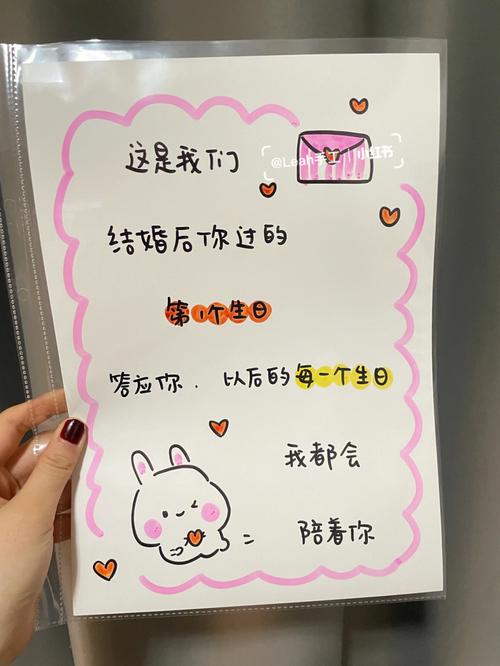 这是我们
@Leah手工 小红书
结婚后你过的
第1个生日
答应你．以后的每一个生日
我都会
陪着你